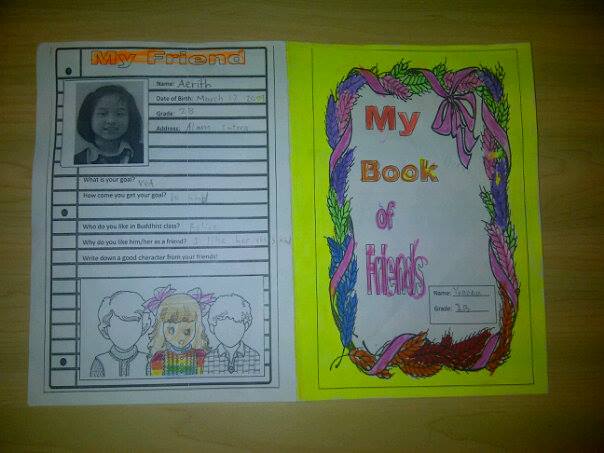 My Friend
Name: Aerith
Date of Birth: March 17 20
Grade: 2B
Address: Alam
What is your goal?
How come you get your goal?
Who do you like in Buddhist class? Felice
Why do you like him/her as a friend? I like her
Write down a good character from your friends!
My
Book
of
Friends
Name:
Grade: 2B